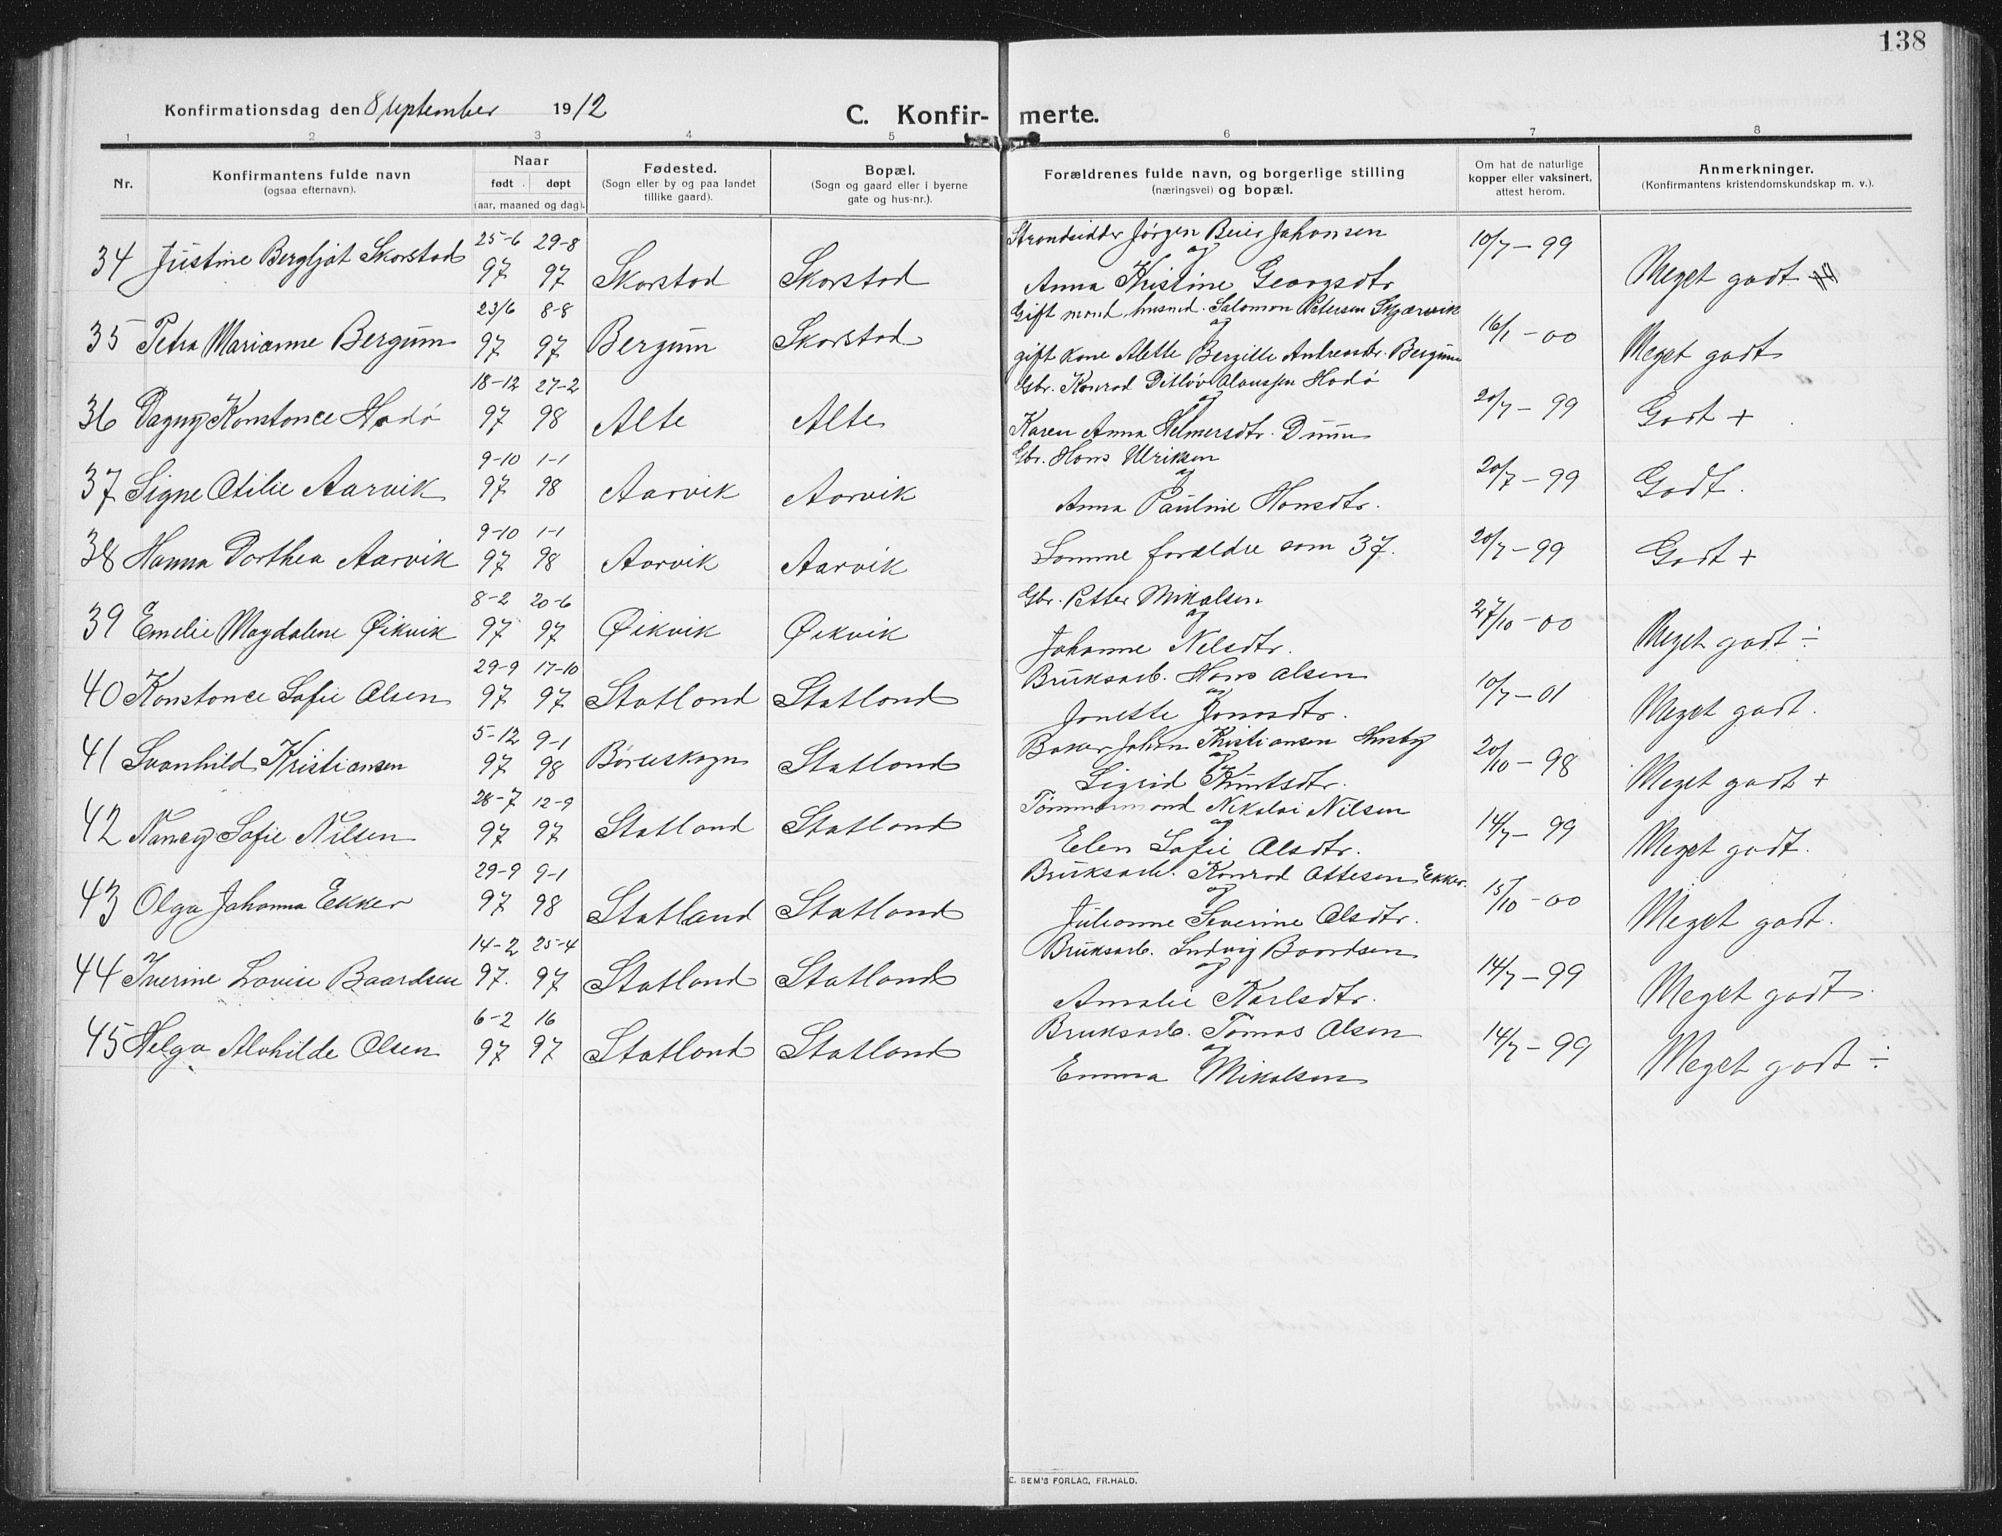 138
Konfirmationsdag den 8 september 1912 C. Konfir- merte.
1 2 3 4 5 6 7 8
Nr. Konfirmantens fulde navn (ogsaa efternavn). Naar født døpt (aar, maaned og dag). Fødested. (Sogn eller by og paa landet tillike gaard). Bopæl. (Sogn og gaard eller i byerne gate og hus-nr.). Forældrenes fulde navn, og borgerlige stilling (næringsvei) og bopæl. Om hat de naturlige kopper eller vaksinert, attest herom. Anmerkninger. (Konfirmantens kristendomskundskap m. v.).
34 Justine Bergljot Skorstad 25-6 97 29-8 97 Skorstad Skorstad Strandsidder Jørgen Beier Johansen og Anna Kristine Georgsdtr 10/7-99 Meget godt
35 Petra Marianne Bergum 23/6 97 8-8 97 Bergum Skorstad Gift mand, husmd. Salomon Petersen Skjærvik og gift kone Alette Bergitte Andreasdtr. Bergum 16/1-00 Meget godt
36 Dagny Konstance Hodø 18-12 97 27-2 98 Alte Alte Gbr. Konrad Ditløv Claussen Hodø og Karen Anna Helmersdtr. Duun 20/7-99 Godt +
37 Signe Otilie Aarvik 9-10 97 1-1 98 Aarvik Aarvik Gbr. Hans Ulriksen og Anna Pauline Hansdtr. 20/7-99 Godt.
38 Hanna Dorthea Aarvik 9-10 97 1-1 98 Aarvik Aarvik Samme forældre som 37. 20/7-99 Godt +
39 Emelie Magdalene Øikvik 8-2 97 20-6 97 Øikvik Øikvik Gbr. Petter Mikalsen og Johanne Nilsdtr. 27/10-00 Meget godt ÷
40 Konstance Sofie Olsen 29-9 97 17-10 97 Statland Statland Bruksarb. Hans Olsen og Jonette Jonasdtr. 10/7-01 Meget godt.
41 Svanhild Kristiansen 5-12 97 9-1 98 Statland Baker Johan Kristiansen Husby og Sigrid Knutsdtr. 20/10-98 Meget godt +
42 Nancy Sofie Nilsen 28-7 97 12-9 97 Statland Statland Tømmermand Nikolai Nilsen og Elen Sofie Olsdtr. 14/7-99 Meget godt.
43 Olga Johanna Ekker 29-9 97 9-1 98 Statland Statland Bruksarb. Konrad Ottesen Ekker og Julianne Severine Olsdtr. 15/10-00 Meget godt.
44 Iverine Lovise Baardsen 14-2 97. 25-4 97 Statland Statland Bruksarb. Ludvig Baardsen og Amalie Karlsdtr. 14/7-99 Meget godt.
45 Helga Alvhilde Olsen 6-2 97 16 97 Statland Statland Bruksarb. Tomas Olsen og Emma Mikalsen 14/7-99 Meget godt ÷
E. SEM'S FORLAG, FR.HALD.